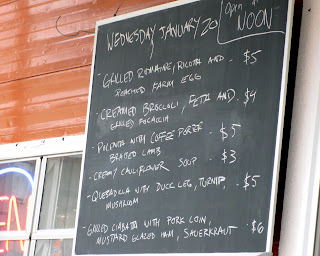 WEDNESDAY JANUARY 20
OPEN AT
NOON
- GRILLED ROMAINE, RICOTTA AND - $5
POACHED FARM EGG
- CREAMED BROCCOLI, FETA AND - $4
GRILLED FOCACCIA
- POLENTA WITH COFFEE PORTER - $5
BRAISED LAMB
- CREAMY CAULIFLOWER SOUP - $3
- QUESADILLA WITH DUCK LEG, TURNIP, - $5
MUSHROOM
- GRILLED CIABATTA WITH PORK LOIN, - $6
MUSTARD GLAZED HAM, SAUERKRAUT